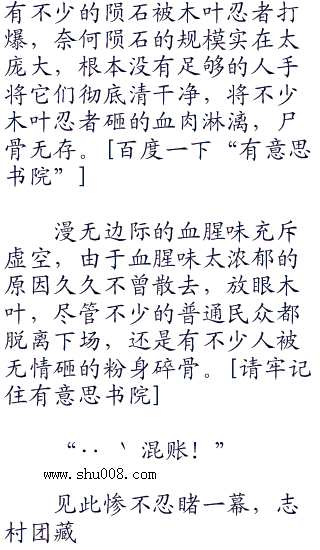 有不少的陨石被木叶忍者打
爆，奈何陨石的规模实在太
庞大，根本没有足够的人手
将它们彻底清干净，将不少
木叶忍者砸的血肉淋漓，尸
骨无存。[百度一下“有意思
书院”]
漫无边际的血腥味充斥
虚空，由于血腥味太浓郁的
原因久久不曾散去，放眼木
叶，尽管不少的普通民众都
脱离下场，还是有不少人被
无情砸的粉身碎骨。[请牢记
住有意思书院]
“‥｀混账！”
www.shu008.com
见此惨不忍睹一幕，志
村团藏